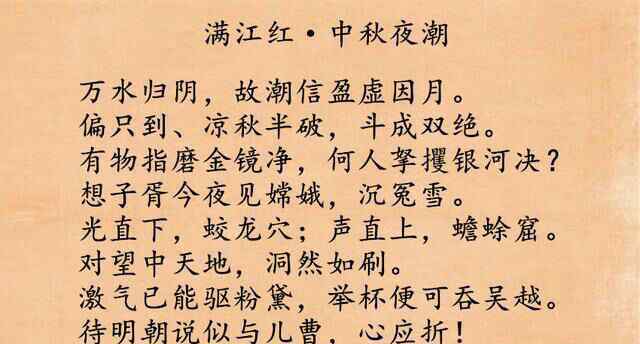 满江红·中秋夜潮
万水归阴，故潮信盈虚因月。
偏只到、凉秋半破，斗成双绝。
有物指磨金镜净，何人拏攫银河决？
想子胥今夜见嫦娥，沉冤雪。
光直下，蛟龙穴；声直上，蟾蜍窟。
对望中天地，洞然如刷。
激气已能驱粉黛，举杯便可吞吴越。
待明朝说似与儿曹，心应折！